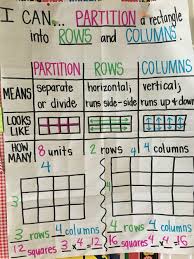 I CAN... PARTITION a rectangle
into ROWS and COLUMNS.
PARTITION ROWS COLUMNS
MEANS separate or divide horizontal; runs side-side vertical; runs up+down
LOOKS LIKE
HOW MANY 8 units 2 rows 4 columns
3
4
4
4
3 rows 4 columns 4 rows 4 columns
12 squares 3 x 4 = 12 16 squares 4 x 4 = 16